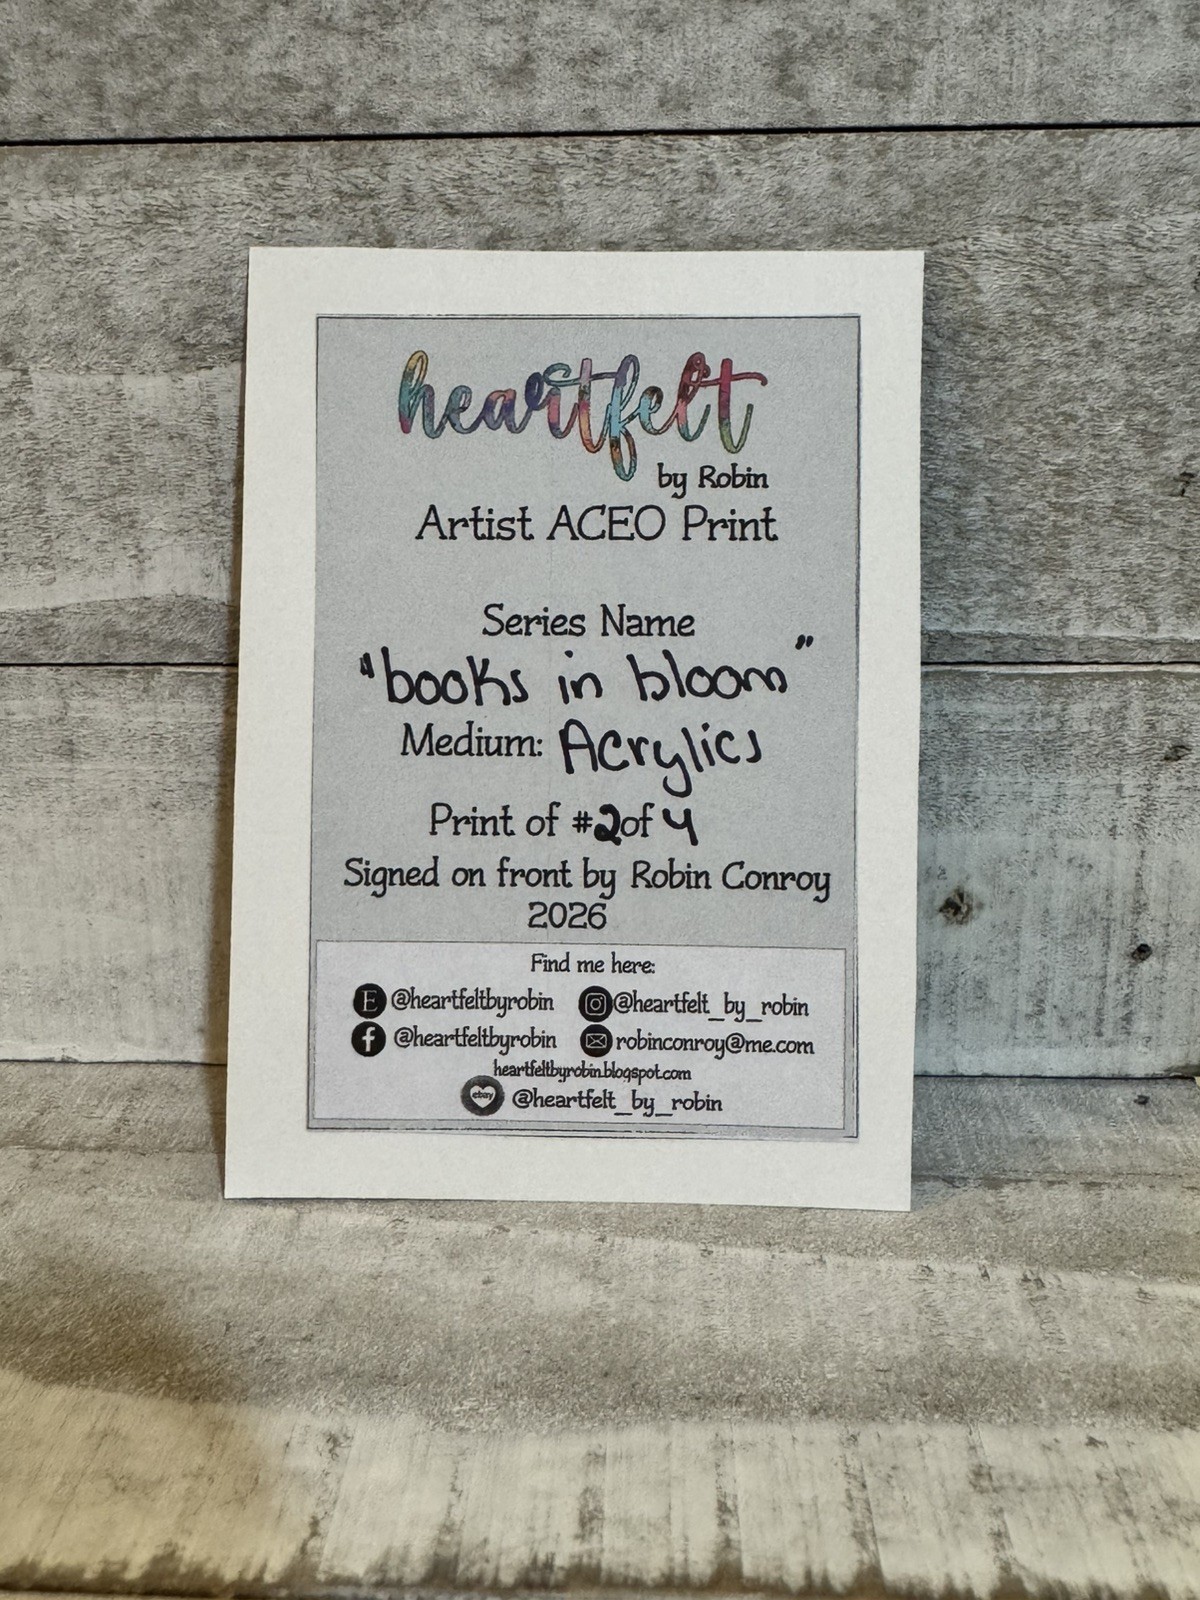 heartfelt
by Robin
Artist ACEO Print
Series Name
"books in bloom"
Medium: Acrylics
Print of #2of 4
Signed on front by Robin Conroy
2026
Find me here:
E @heartfeltbyrobin @heartfelt_by_robin
f @heartfeltbyrobin robinconroy@me.com
heartfeltbyrobin.blogspot.com
ebay @heartfelt_by_robin